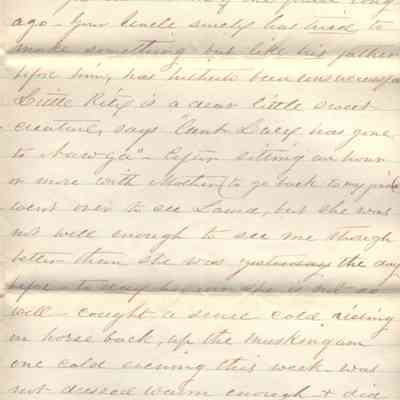 ago - Your Uncle surely has tried to
make something but like his father
before him, has hitherto been unsuccessful
Little Rity is a dear little sweet
creature, says "Aunt Lacy has gone
to" - After sitting an hour
or more with Mother, (to go back to my
went over to see Laura, but she was
not well enough to see me though
better than she was yesterday the day
before to day
will - caught a severe cold, riding
on horse back, up the Muskingum
one cold evening this week - was
not dressed warm enough & did